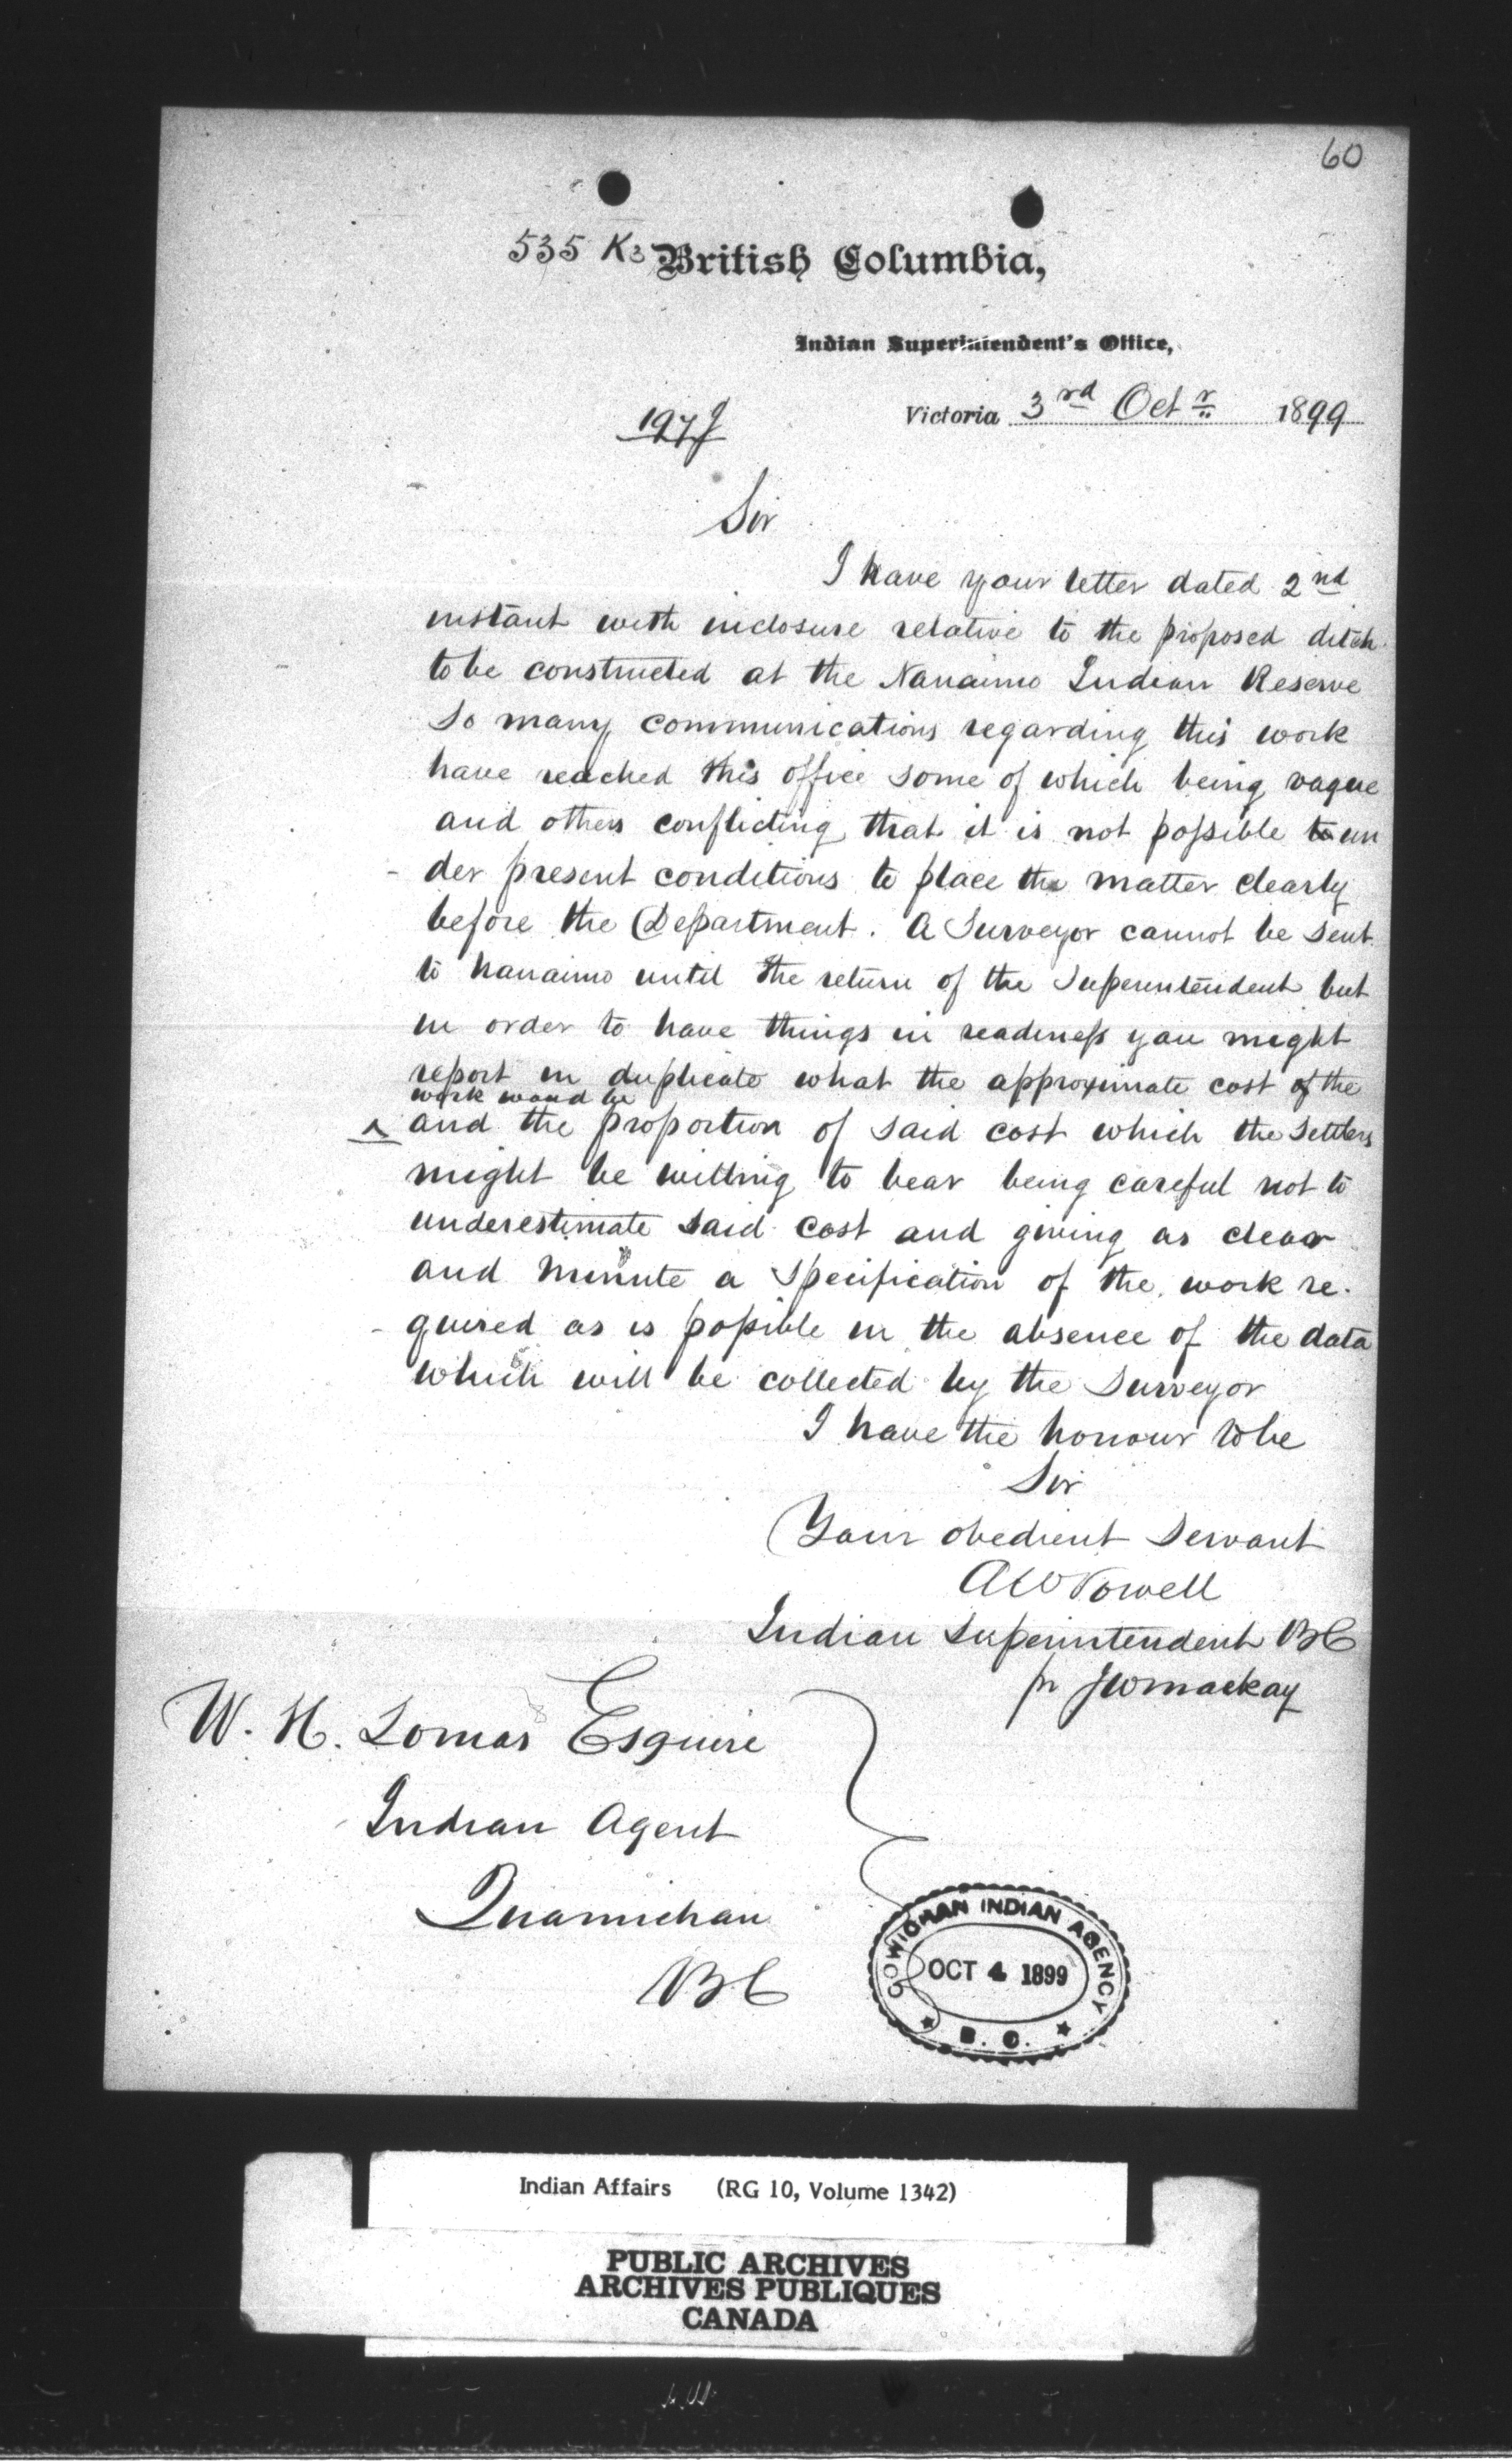 60
535 K3 British Columbia,
Indian Superintendent's Office,
197 9
Victoria 3rd Octr 1899
Sir
I have your letter dated 2nd
instant with inclosure relative to the proposed ditch
to be constructed at the Nanaimo Indian Reserve
So many communications regarding this work
have reached this office some of which being vague
and others conflicting that it is not possible to un
der present conditions to place the matter clearly
before the Department. A Surveyor cannot be sent
to Nanaimo until the return of the Superintendent but
in order to have things in readiness you might
report in duplicate what the approximate cost of the
work woud be
and the proportion of said cost which the Settlers
might be willing to bear being careful not to
underestimate said cost and giving as clear
and minute a specification of the work re-
quired as is possible in the absence of the data
which will be collected by the Surveyor
I have the honour to be
Sir
Your obedient Servant
A W Vowell
Indian Superintendent BC
pr JW Mackay
W. H. Lomas Esquire
Indian Agent
Quamichan
BC
COWICHAN INDIAN AGENCY
OCT 4 1899
B. C.
Indian Affairs (RG 10, Volume 1342)
PUBLIC ARCHIVES
ARCHIVES PUBLIQUES
CANADA